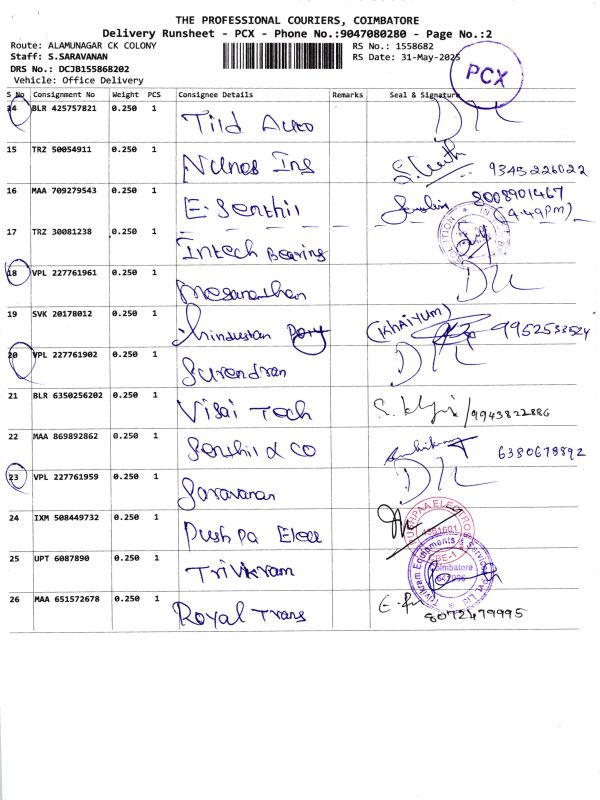 THE PROFESSIONAL COURIERS, COIMBATORE
Delivery Runsheet - PCX - Phone No.:9047080280 - Page No.:2
Route: ALAMUNAGAR CK COLONY RS No.: 1558682
Staff: S.SARAVANAN RS Date: 31-May-2025
DRS No.: DCJB155868202
Vehicle: Office Delivery
PCX
S No Consignment No Weight PCS Consignee Details Remarks Seal & Signature
14 BLR 425757821 0.250 1
15 TRZ 50054911 0.250 1 9345226022
16 MAA 709279543 0.250 1 E. Senthil 8008901467
(4.49PM)
17 TRZ 30081238 0.250 1 Intech Bearing
18 VPL 227761961 0.250 1 DIL
19 SVK 20178012 0.250 1 Hindustan (KHAIYUM) 9952533524
20 VPL 227761902 0.250 1 Surendran DIL
21 BLR 6350256202 0.250 1 Visai Tech 9943822886
22 MAA 869892862 0.250 1 Senthil & CO 6380678892
23 VPL 227761959 0.250 1 Saravanan DIL
24 IXM 508449732 0.250 1 Pushpa Elec
25 UPT 6087890 0.250 1 Trivikram
26 MAA 651572678 0.250 1 Royal Trans 8072479995